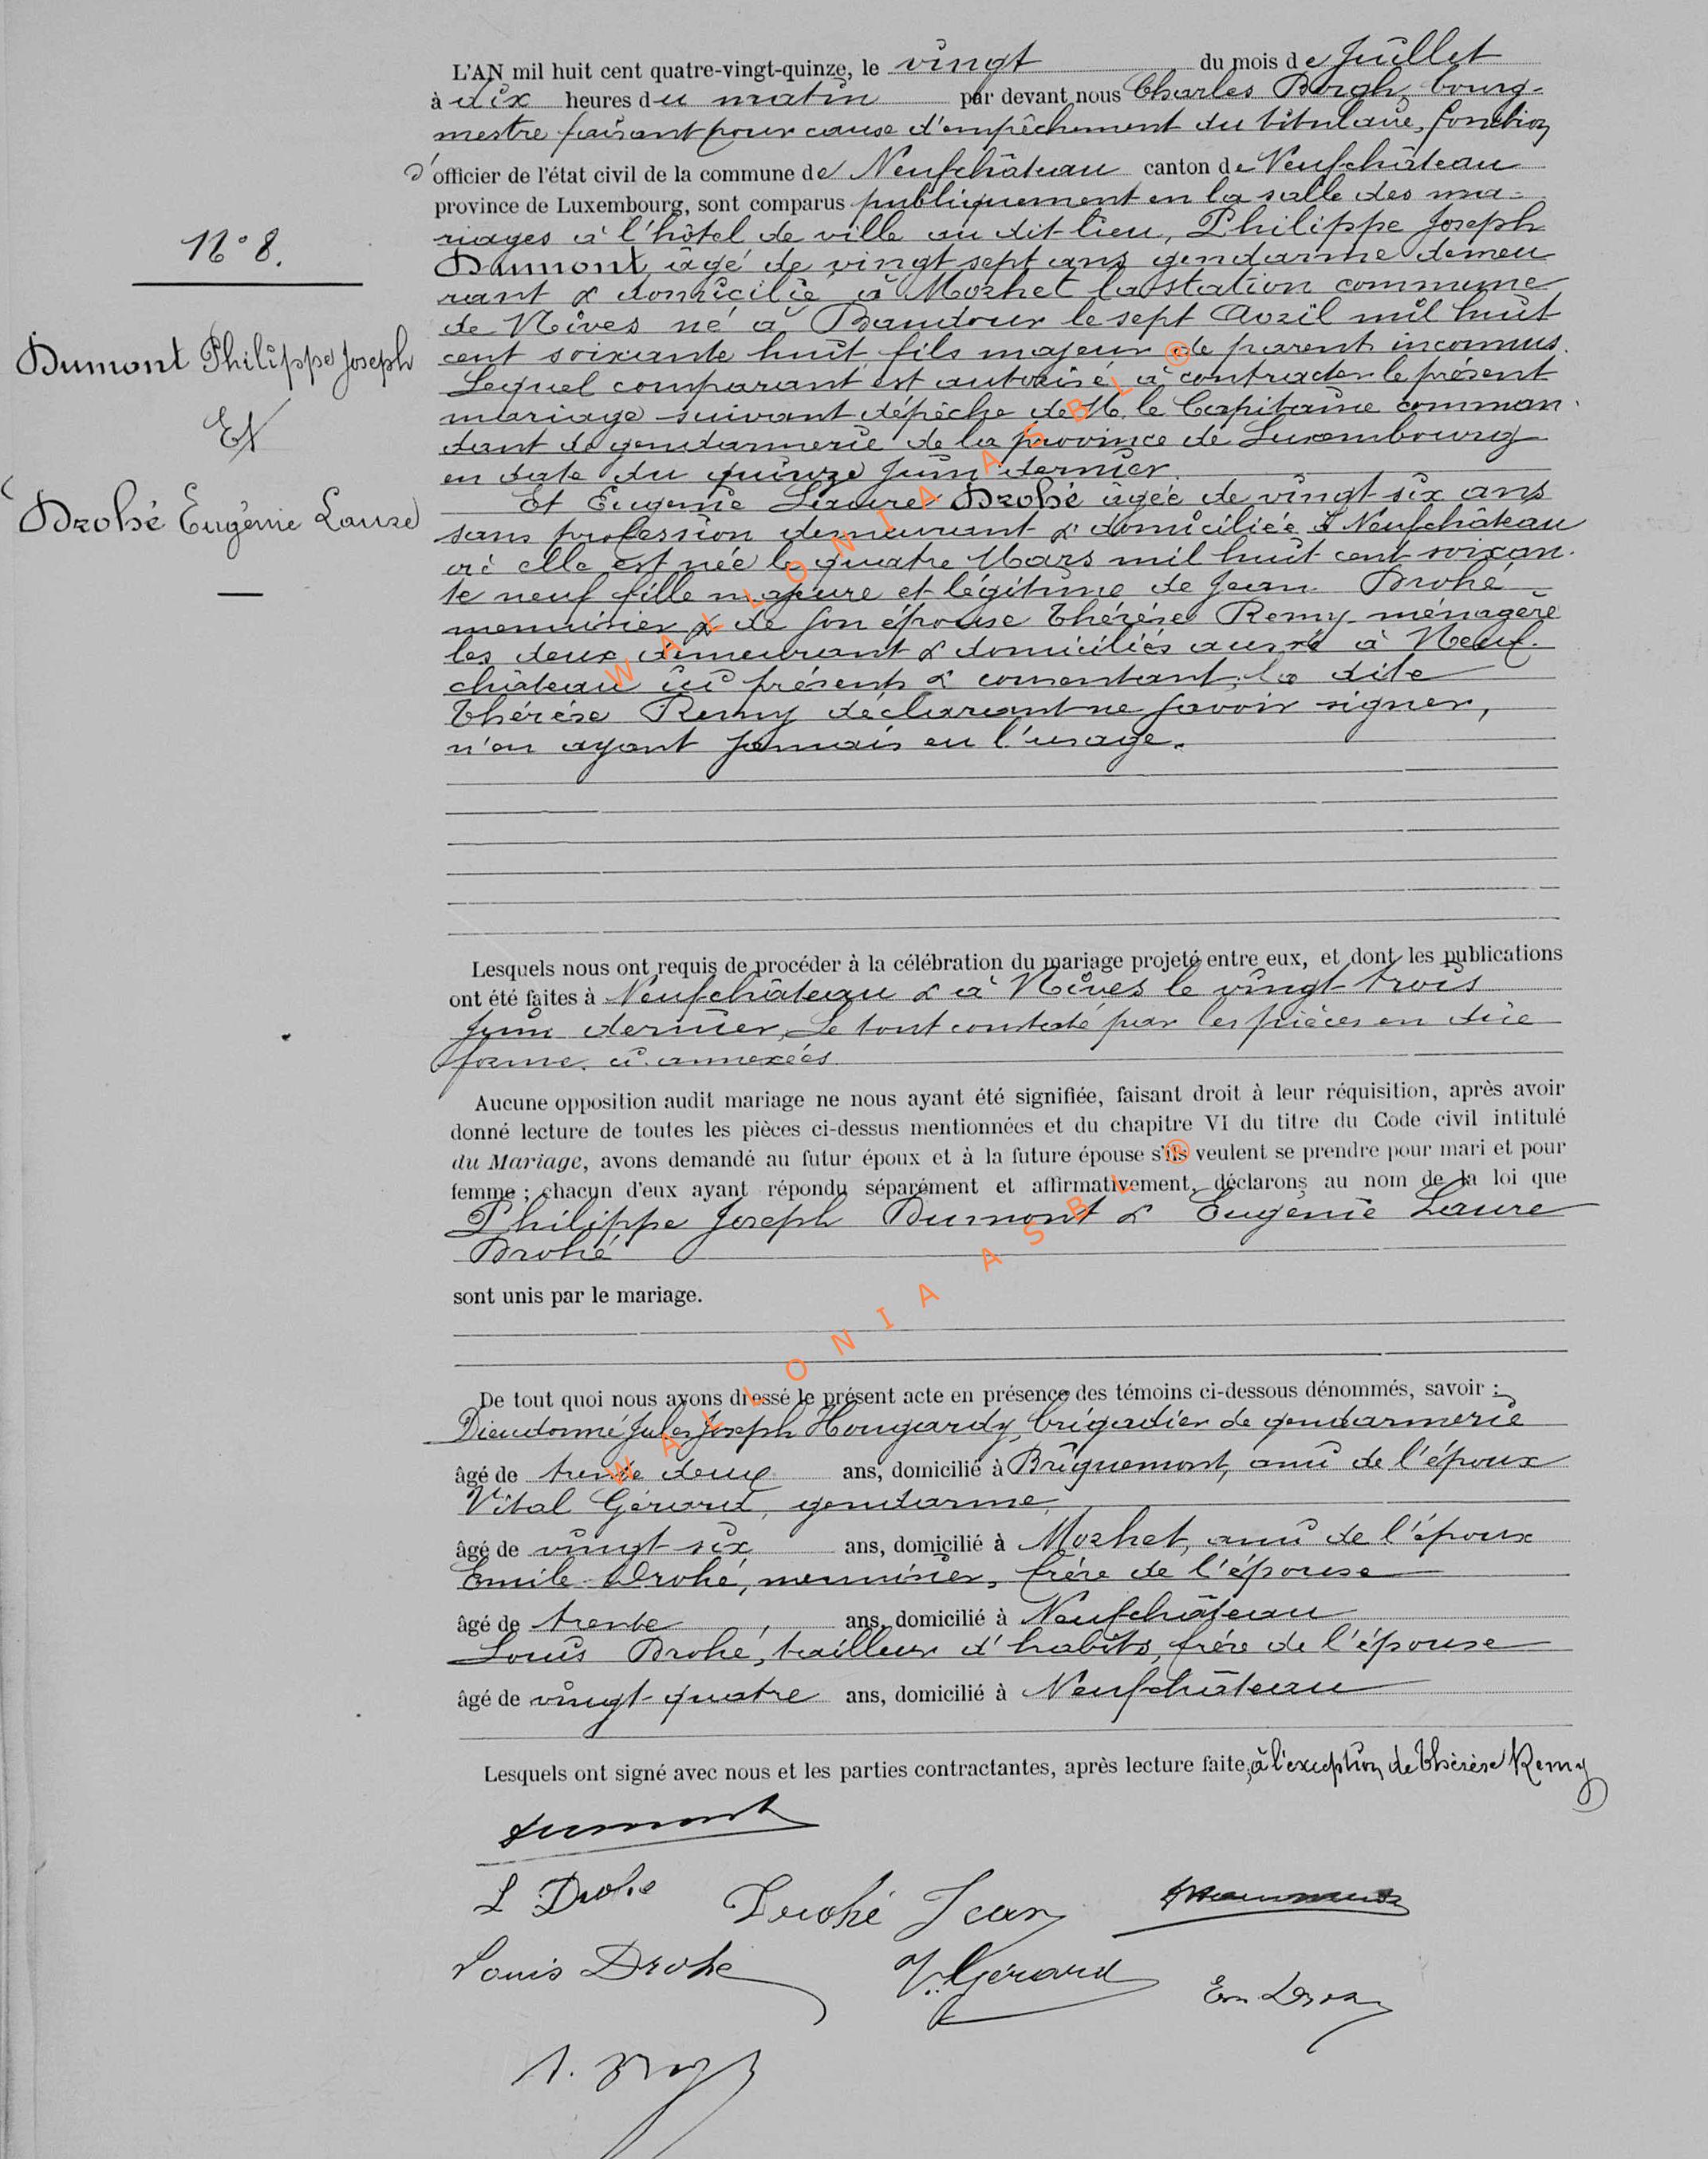 L'AN mil huit cent quatre-vingt-quinze, le vingt du mois de Juillet
à dix heures du matin par devant nous Charles Bergh, bourg-
mestre faisant pour cause d'empêchement du titulaire, fonction
d'officier de l'état civil de la commune de Neufchâteau canton de Neufchâteau
province de Luxembourg, sont comparus publiquement en la salle des ma-
riages à l'hôtel de ville au dit lieu, Philippe Joseph
N° 8.
Dumont, âgé de vingt sept ans gendarme demeu
rant & domicilié à Morhet la station commune
de Nives né à Baudour le sept Avril mil huit
Dumont Philippe Joseph
cent soixante huit fils majeur de parents inconnus.
Lequel comparant est autorisé à contracter le présent
mariage suivant dépêche de M. le Capitaine comman-
Et
dant de gendarmerie de la province de Luxembourg
en date du quinze Juin dernier.
Et Eugénie Laure Drohé âgée de vingt-six ans
Drohé Eugénie Laure
sans profession demeurant & domiciliée à Neufchâteau
où elle est née le quatre Mars mil huit cent soixan-
te neuf fille majeure et légitime de Jean Drohé
menuisier & de son épouse Thérèse Remy ménagère
les deux demeurant & domiciliés aussi à Neuf-
château ici présents & consentant, la dite
Thérèse Remy déclarant ne savoir signer,
n'en ayant jamais eu l'usage.
Lesquels nous ont requis de procéder à la célébration du mariage projeté entre eux, et dont les publications
ont été faites à Neufchâteau & à Nives le vingt-trois
Juin dernier, Le tout constaté par les pièces en due
forme ci-annexées.
Aucune opposition audit mariage ne nous ayant été signifiée, faisant droit à leur réquisition, après avoir
donné lecture de toutes les pièces ci-dessus mentionnées et du chapitre VI du titre du Code civil intitulé
du Mariage, avons demandé au futur époux et à la future épouse s'ils veulent se prendre pour mari et pour
femme ; chacun d'eux ayant répondu séparément et affirmativement, déclarons au nom de la loi que
Philippe Joseph Dumont & Eugénie Laure
Drohé
sont unis par le mariage.
De tout quoi nous avons dressé le présent acte en présence des témoins ci-dessous dénommés, savoir :
Dieudonné Jules Joseph Hougardy, brigadier de gendarmerie
âgé de trente deux ans, domicilié à Briquemont, ami de l'époux
Vital Gérard, gendarme,
âgé de vingt six ans, domicilié à Morhet, ami de l'époux
Emile Drohé, menuisier, frère de l'épouse
âgé de trente ans, domicilié à Neufchâteau
Louis Drohé, tailleur d'habits, frère de l'épouse
âgé de vingt-quatre ans, domicilié à Neufchâteau
Lesquels ont signé avec nous et les parties contractantes, après lecture faite, à l'exception de Thérèse Remy
Dumont
L Drohe Drohé Jean
Louis Drohe V. Gérard
WALLONIA ASBL ®
WALLONIA ASBL ®